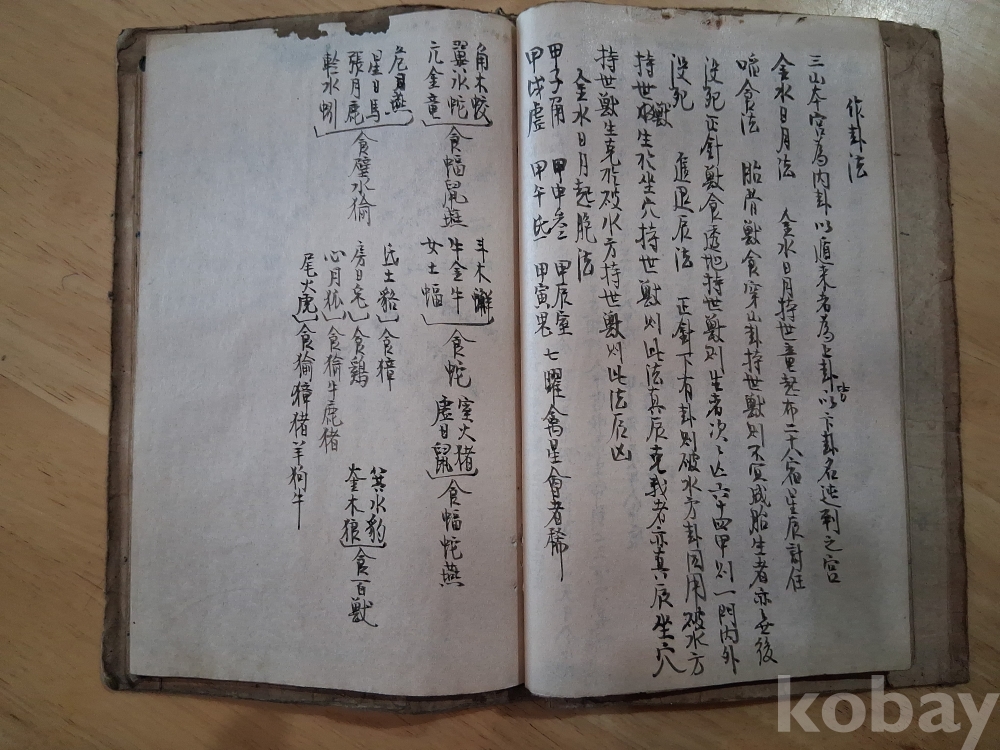 作卦法
三山本宮為內卦以順來者為上卦以下卦名逆到之宮
金水日月法 金水日月持世章起布二十八宿星辰討任
啗食法 胎骨獸食穿山卦持世獸則不宜成胎生者亦無後
沒死正針獸食透地持世獸則生者次之亡六十四甲則一門內外
沒死 進退辰法 正針下有卦則破水方卦因用破水方
持世獸生於坐穴持世獸則此法真辰克我者亦真辰坐穴
持世獸生克於破水方持世獸則此法辰凶
金水日月起脆法
甲子角 甲申參 甲辰室 七曜禽星會者稀
甲戌虛 甲午氐 甲寅鬼
角木蛟
翼火蛇
亢金竜 食蝠鼠燕
危月燕
星日馬
張月鹿
軫水蚓 食壁水㺄
斗木獬
牛金牛
女土蝠 食蛇
室火猪
虛日鼠 食蝠蛇燕
氐土貉 食獐
房日兎 食鷄
心月狐 食㺄牛鹿猪
尾火虎 食㺄獐猪羊狗牛
箕水豹
奎木狼 食百獸
kobay